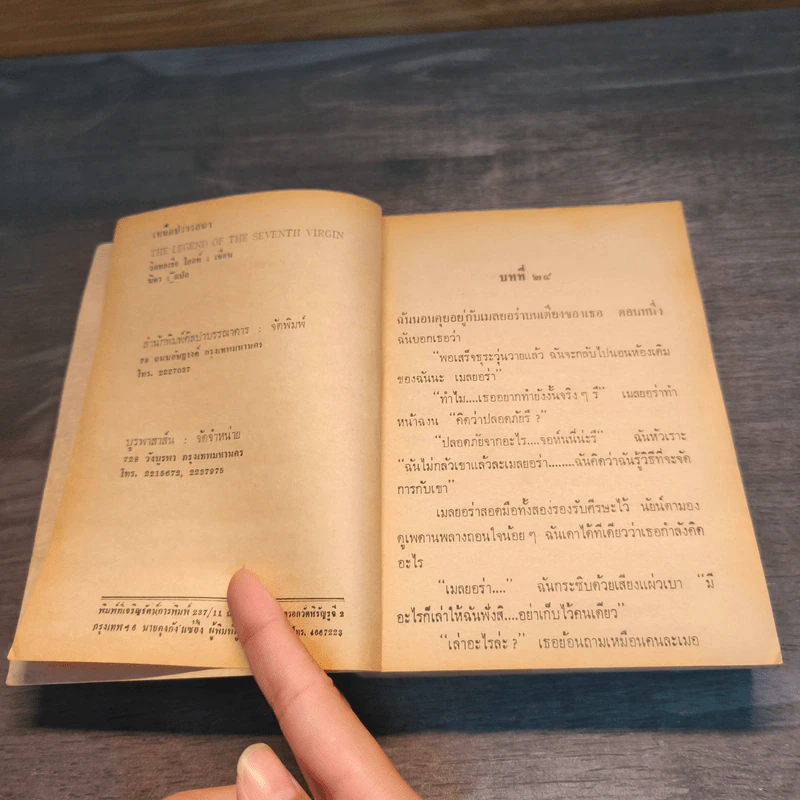 THE LEGEND OF THE SEVENTH VIRGIN
วิคตอเรีย โฮลท์ : เขียน
สำนักพิมพ์ศิลปาบรรณาคาร : จัดพิมพ์
กรุงเทพมหานคร
โทร. 2227037
บูรพาสาส์น : จัดจำหน่าย
728 วังบูรพา กรุงเทพมหานคร
โทร. 2215672, 2237975
พิมพ์ที่เจริญรัตน์การพิมพ์ 237/11 ตรอกวัดหิรัญรูจี 2
กรุงเทพฯ 6 ผู้พิมพ์ โทร. 4667223
บทที่ ๒๔
ฉันนอนคุยอยู่กับเมลยอร่าบนเตียงของเธอ ตอนหนึ่ง
ฉันบอกเธอว่า
“พอเสร็จธุระวุ่นวายแล้ว ฉันจะกลับไปนอนห้องเดิม
ของฉันนะ เมลยอร่า”
“ทำไม....เธออยากทำยังงั้นจริง ๆ รึ” เมลยอร่าทำ
หน้าฉงน “คิดว่าปลอดภัยรึ ?”
“ปลอดภัยจากอะไร....จอห์นนี่น่ะรึ” ฉันหัวเราะ
“ฉันไม่กลัวเขาแล้วละเมลยอร่า........ฉันคิดว่าฉันรู้วิธีที่จะจัด
การกับเขา”
เมลยอร่าสอดมือทั้งสองรองรับศีรษะไว้ นัยน์ตามอง
ดูเพดานพลางถอนใจน้อย ๆ ฉันเดาได้ทีเดียวว่าเธอกำลังคิด
อะไร
“เมลยอร่า....” ฉันกระซิบด้วยเสียงแผ่วเบา “มี
อะไรก็เล่าให้ฉันฟังสิ....อย่าเก็บไว้คนเดียว”
“เล่าอะไรล่ะ ?” เธอย้อนถามเหมือนคนละเมอ